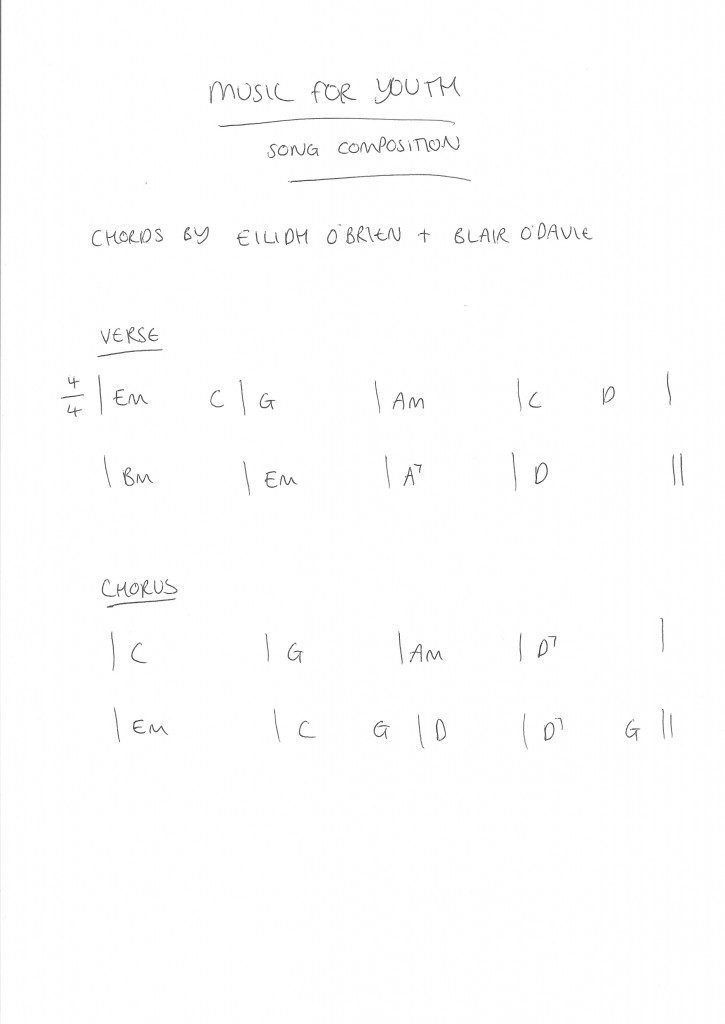 MUSIC FOR YOUTH
SONG COMPOSITION
CHORDS BY EILIDH O'BRIEN + BLAIR O'DAVIE
VERSE
4/4 | EM C | G | AM | C D |
| BM | EM | A7 | D ||
CHORUS
| C | G | AM | D7 |
| EM | C G | D | D7 G ||